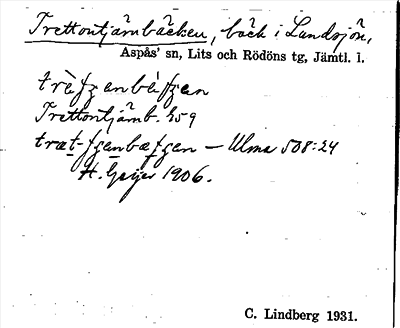 Trettontjärnbäcken, bäck i Landsjön,
Aspås' sn, Lits och Rödöns tg, Jämtl. l.
Trettontjärnb. 259
— Ulma 508:24
H. Geijer 1906.
C. Lindberg 1931.